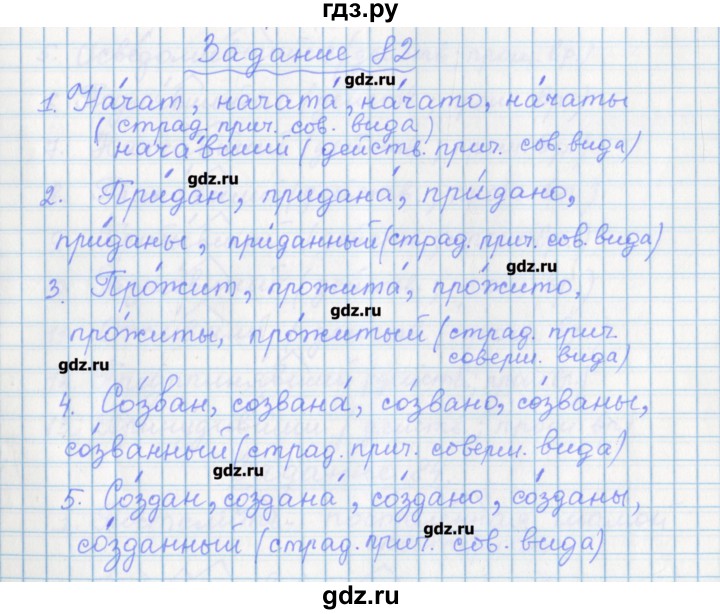 гдз.ру
Задание 82
gdz.ru
1. На́чат, начата́, на́чато, на́чаты
(страд. прич. сов. вида)
нача́вший (действ. прич. сов. вида)
gdz.ru
2. При́дан, придана́, при́дано,
при́даны, при́данный (страд. прич. сов. вида)
gdz.ru
3. Про́жит, прожита́, про́жито,
gdz.ru
про́житы, про́житый (страд. прич.
соверш. вида)
gdz.ru
4. Со́зван, созвана́, со́звано, со́званы,
со́званный (страд. прич. соверш. вида)
gdz.ru
5. Со́здан, создана́, со́здано, со́зданы,
gdz.ru
со́зданный (страд. прич. сов. вида)
гдз.ру